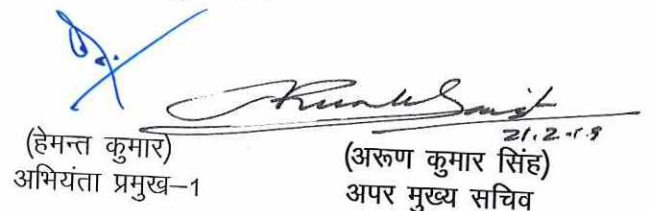 21.2.19
(हेमन्त कुमार)
अभियंता प्रमुख–1
(अरूण कुमार सिंह)
अपर मुख्य सचिव